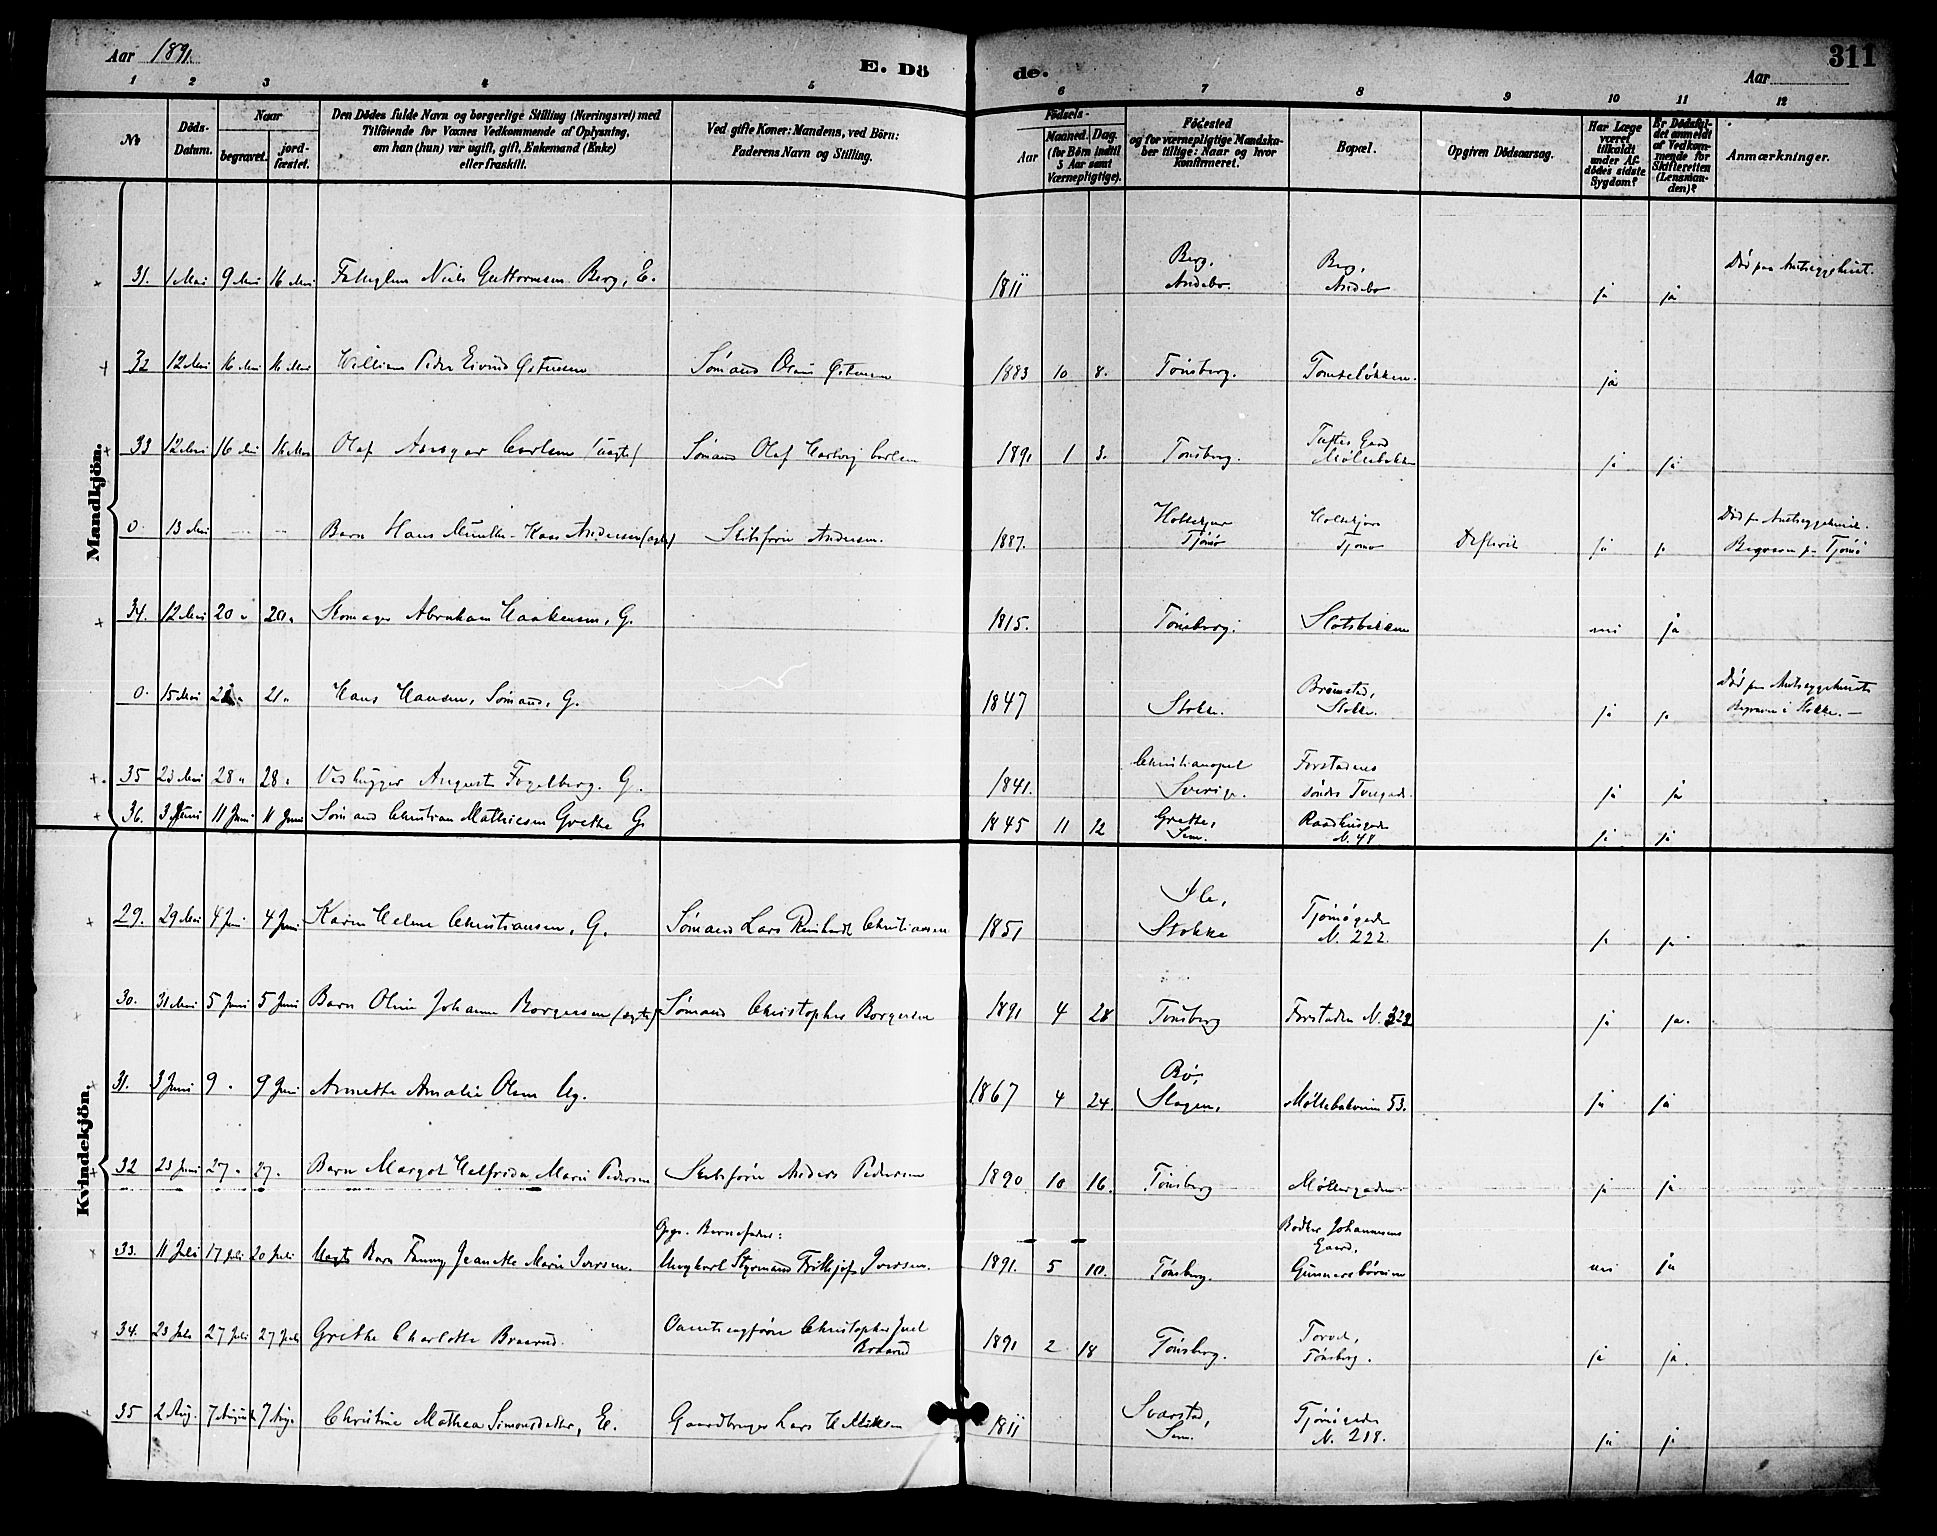 Aar 1891.
E. Dö de.
Aar
311
1 2 3 4 5 6 7 8 9 10 11 12
No
Döds-Datum.
Naar
begravet.
jord-fæstet.
Den Dödes fulde Navn og borgerlige Stilling (Næringsvei) med
Tilföiende for Voxnes Vedkommende af Oplysning,
om han (hun) var ugift, gift, Enkemand (Enke)
eller fraskilt.
Ved gifte Koner: Mandens, ved Börn:
Faderens Navn og Stilling.
Födsels-
Aar
Maaned. Dag.
(for Börn indtil
5 Aar samt
Værnepligtige).
Födested
og for værnepligtige Mandska-
ber tillige: Naar og hvor
konfirmeret.
Bopæl.
Opgiven Dödsaarsag.
Har Læge
været
tilkaldt
under Af-
dödes sidste
Sygdom?
Er Dödsfal-
det anmeldt
af Vedkom-
mende for
Skifteretten
(Lensman-
den)?
Anmærkninger.
Mandkjön.
31. 1 Mai 9 Mai 16 Mai Niels Guttormsen Berg, E. 1811 Berg, Andebo. Berg, Andebo ja ja Död paa Amtssygehuset.
32 12 Mai 16 Mai 16 Mai William Peder Eivind Sömand 1883 10 8. Tönsberg. ja
33 12 Mai 16 Mai 16 Mai Olaf Ansgar Carlsen (uægte) Sömand Olaf Hartvig Carlsen 1891 1 3. Tönsberg. Tuftes Gaard Möllebakken ja ja
0. 13 Mai Barn Hans Munthe-Kaas Andersen (ægte) Skibsförer Andersen. 1887. Holtekjær Tjömö Holtekjær Tjömö Difterit ja ja Död paa Amtssygehuset. Begraven paa Tjömö
34. 12 Mai 20 " 20 " Skomager Abraham Haakensen, G. 1815. Tönsberg. Slotsbakken nei ja
0. 15 Mai 21 " Hans Hansen, Sömand, G. 1847 Stokke. Stokke. ja ja Död paa Amtssygehuset. Begraven i Stokke. —
35 23 Mai 28 " 28 " Vedhugger August Fogelberg. G. 1841. Christianopel Sverige. Forstadens söndre Tvergade. ja ja
36. 3 Juni 11 Juni 11 Juni Sömand Christian Mathiesen Grette G. 1845 11 12 Grette, Sem. Raadhusgaden N. 48 ja ja
Kvindekjön.
29. 29 Mai 4 Juni 4 Juni Karen Helene Christiansen, G. Sömand Lars Reinhardt Christiansen 1851 Stokke Tjömögaden N. 222. ja ja
30. 31 Mai 5 Juni 5 Juni Barn Oline Johanne Borgersen (ægte) Sömand Christopher Borgersen 1891 4 28 Tönsberg Forstaden N. 322 ja ja.
31. 3 Juni 9 " 9 Juni Annette Amalie Olsen Ug. 1867 4 24. Bö, Slagen, 53. ja ja
32 23 Juni 27 " 27 " Barn Margot Helfrida Marie Pedersen Skibsförer Anders Pedersen 1890 10 16. Tönsberg Möllergaden. ja ja
33. 11 Juli 17 Juli 20 Juli Uægte Barn Fanny Jeanette Marie Iversen. Opg. Barnefader: Ungkarl Styrmand Frithjof Iversen. 1891. 5 10. Tönsberg. Bödker Johannesens Gaard, nei ja
34. 23 Juli 27 Juli 27 Juli Grethe Charlotte Braarud. Christopher Juel Braarud 1891 2 18 Tönsberg. Torvet, Tönsberg. ja ja.
35 2 Aug. 7 August 7 Aug. Christine Mathea Simonsdatter, E. Gaardbruger Lars 1811 Svarstad, Sem. Tjömögaden N. 218. ja ja